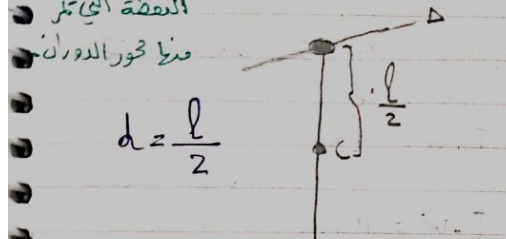 النقطة التي تمر
منها محور الدوران
Δ
l/2
d = l/2
C